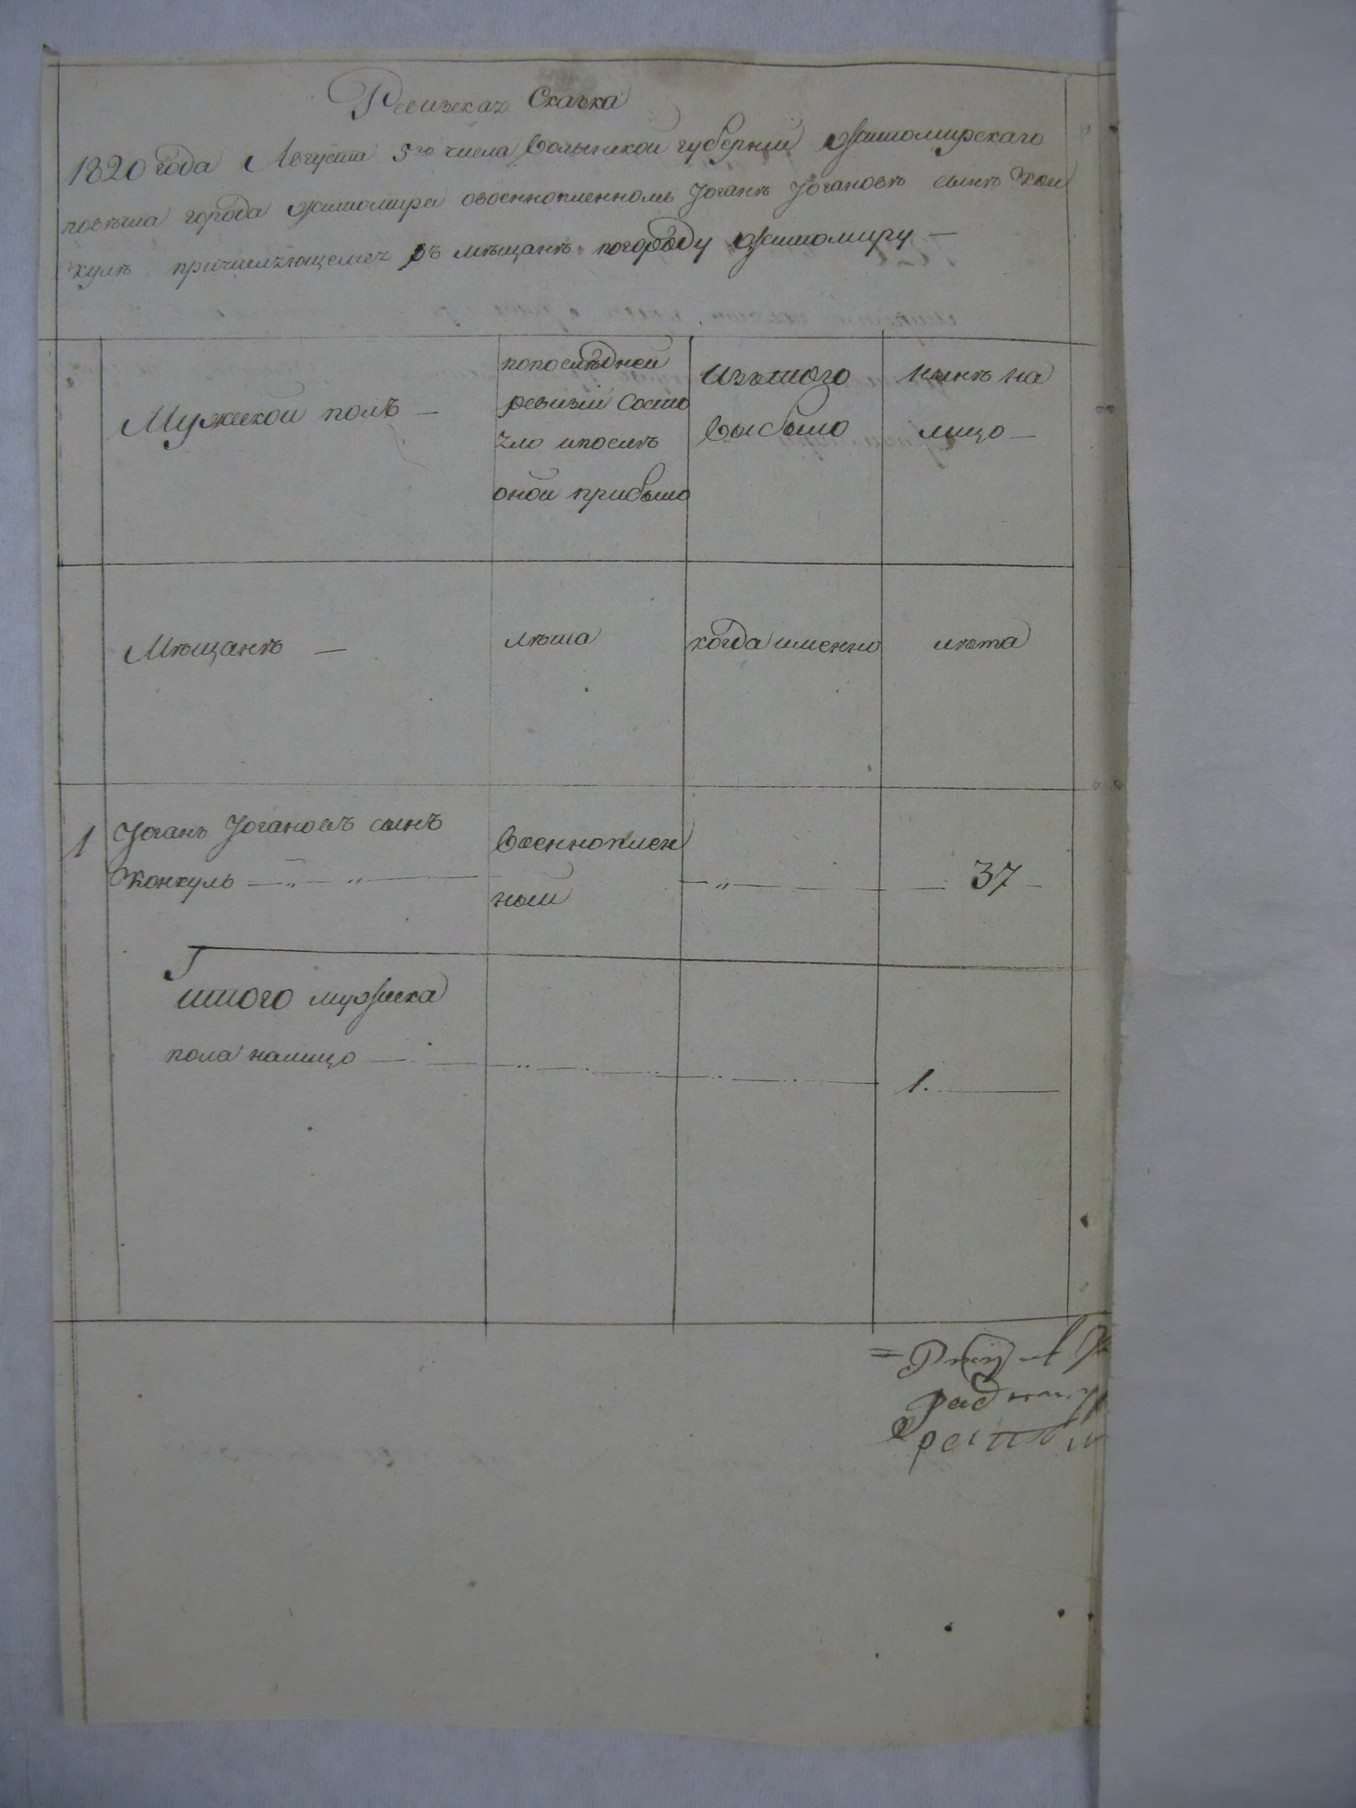 Ревизская Сказка
1820 года Августа 5го числа Волынской губернии Житомирскаго
повѣта города Житомира овоеннопленномъ Іоганѣ Іогановѣ сынѣ Кон
кулѣ причисляющемся въ мѣщанѣ погороду Житомиру —
Мужеской полъ —
попослѣдней
ревизіи состо
яло ипослѣ
оной прибыло
Изътого
выбыло
нынѣ на
лицо —
Мѣщанѣ —
лѣта
когда именно
лѣта
1
Іоганъ Іогановъ сынъ
Конкуль
Военноплен
ный
37
Итого мужеска
пола налицо
1.